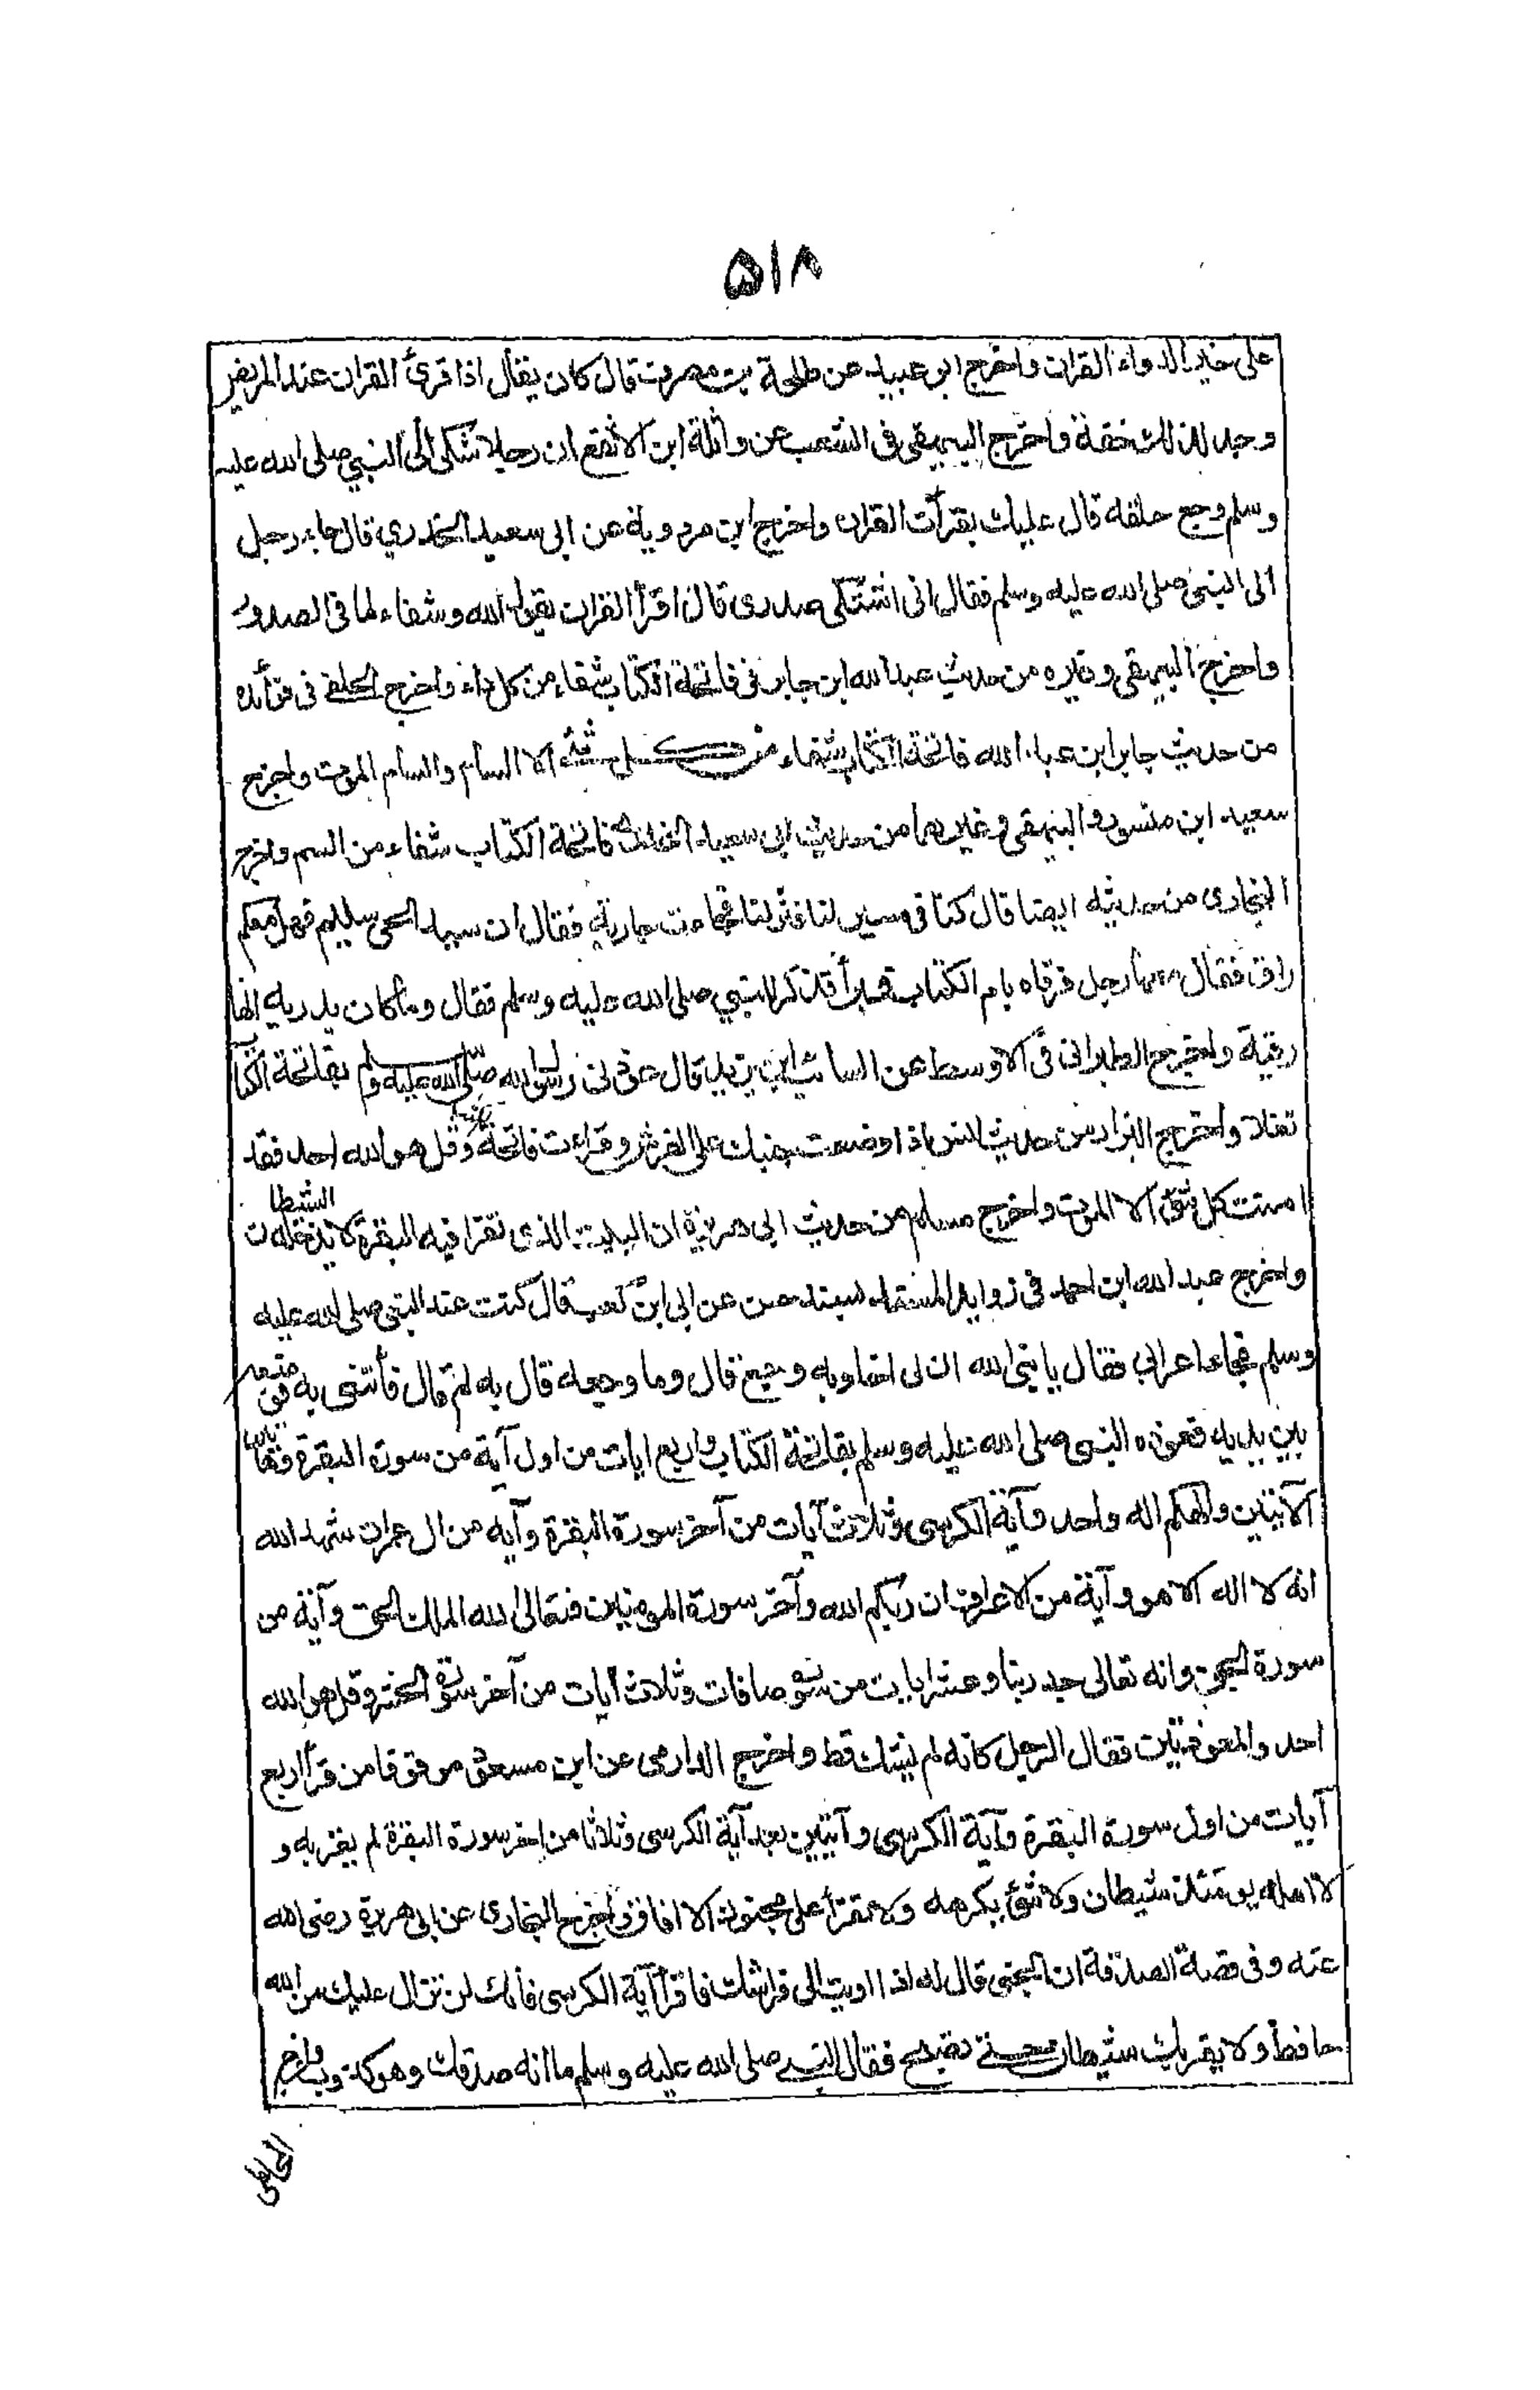 ۵۱۸
على خير الدواء القران واخرج ابو عبيد عن طلحة بن مصرف قال كان يقال اذا قرئ القران عند المريض
وجد لذلك خفة واخرج البيهقى فى الشعب عن واثلة ابن الاسقع ان رجلا شكى الى النبي صلى الله عليه
وسلم وجع حلقه قال عليك بقرأت القران واخرج ابن مردوية عن ابى سعيد الخدري قال جاء رجل
الى النبي صلى الله عليه وسلم فقال انى اشتكى صدرى قال اقرأ القران يقول الله وشفاء لما فى الصدور
واخرج البيهقى وغيره من حديث عبدالله ابن جابر فى فاتحة الكتاب شفاء من كل داء واخرج الخلعى فى فوائده
من حديث جابر ابن عبد الله فاتحة الكتاب شفاء من كل شئ الا السأم والسام الموت واخرج
سعيد ابن منصور والبيهقى وغيرهما من حديث ابى سعيد الخدرى فاتحة الكتاب شفاء من السم واخرج
البخارى من حديثه ايضا قال كنا فى مسير لنا فنزلنا فجاءت جارية فقال ان سيد الحى سليم فهل معكم
راق فقال معها رجل فرقاه بام الكتاب فبرأ فذكر للنبي صلى الله عليه وسلم فقال وما كان يدريه انها
رقية واخرج الطبرانى فى الاوسط عن السائب ابن يزيد قال عوذنى رسول الله صلى الله عليه ولم بفاتحة الكتاب
تفلا واخرج البزار من حديث انس اذا وضعت جنبك على الفرش وقراءت فاتحة وقل هو الله احد فقد
امنت كل شئ الا الموت واخرج مسلم من حديث ابى هريرة ان البيت الذى تقرا فيه البقرة لا يدخله الشيطان
واخرج عبد الله ابن احمد فى زوايد المسند بسند حسن عن ابى ابن كعب قال كنت عند النبي صلى الله عليه
وسلم فجاء اعرابى فقال يا نبى الله ان لى اخا وبه وجع قال وما وجعه قال به لم قال فأتنى به فوضعه
بين يديه فعوذه النبى صلى الله عليه وسلم بفاتحة الكتاب واربع ايات من اول آية من سورة البقرة وهاتان
الآيتين والهكم اله واحد وآية الكرسى وثلاث آيات من آخر سورة البقرة وآيه من ال عمران شهد الله
انه لا اله الا هو وآية من الاعراف ان ربكم الله وآخر سورة المومنين فتعالى الله الملك الحق وآية من
سورة الجن وانه تعالى جد ربنا وعشر ايات من سورة صافات وثلاث آيات من آخر سورة الحشر وقل هو الله
احد والمعوذتين فقال الرجل كانه لم يشك قط واخرج الدارمى عن ابن مسعود موقوفا من قرأ اربع
آيات من اول سورة البقرة وآية الكرسى وآيتين بعد آية الكرسى وثلاثا من اخر سورة البقرة لم يقربه و
لا اهله يومئذ شيطان ولا شئ يكرهه ولا تقرأ على مجنون الا افاق واخرج البخارى عن ابى هريرة رضى الله
عنه وفى قصة الصدقة ان الجنى قال له اذا اويت الى فراشك فاقرأ آية الكرسى فأنك لن تزال عليك من الله
حافظ ولا يقربك شيطان حتى تصبح فقال النبي صلى الله عليه وسلم ما انه صدقك وهو كذوب واخرج